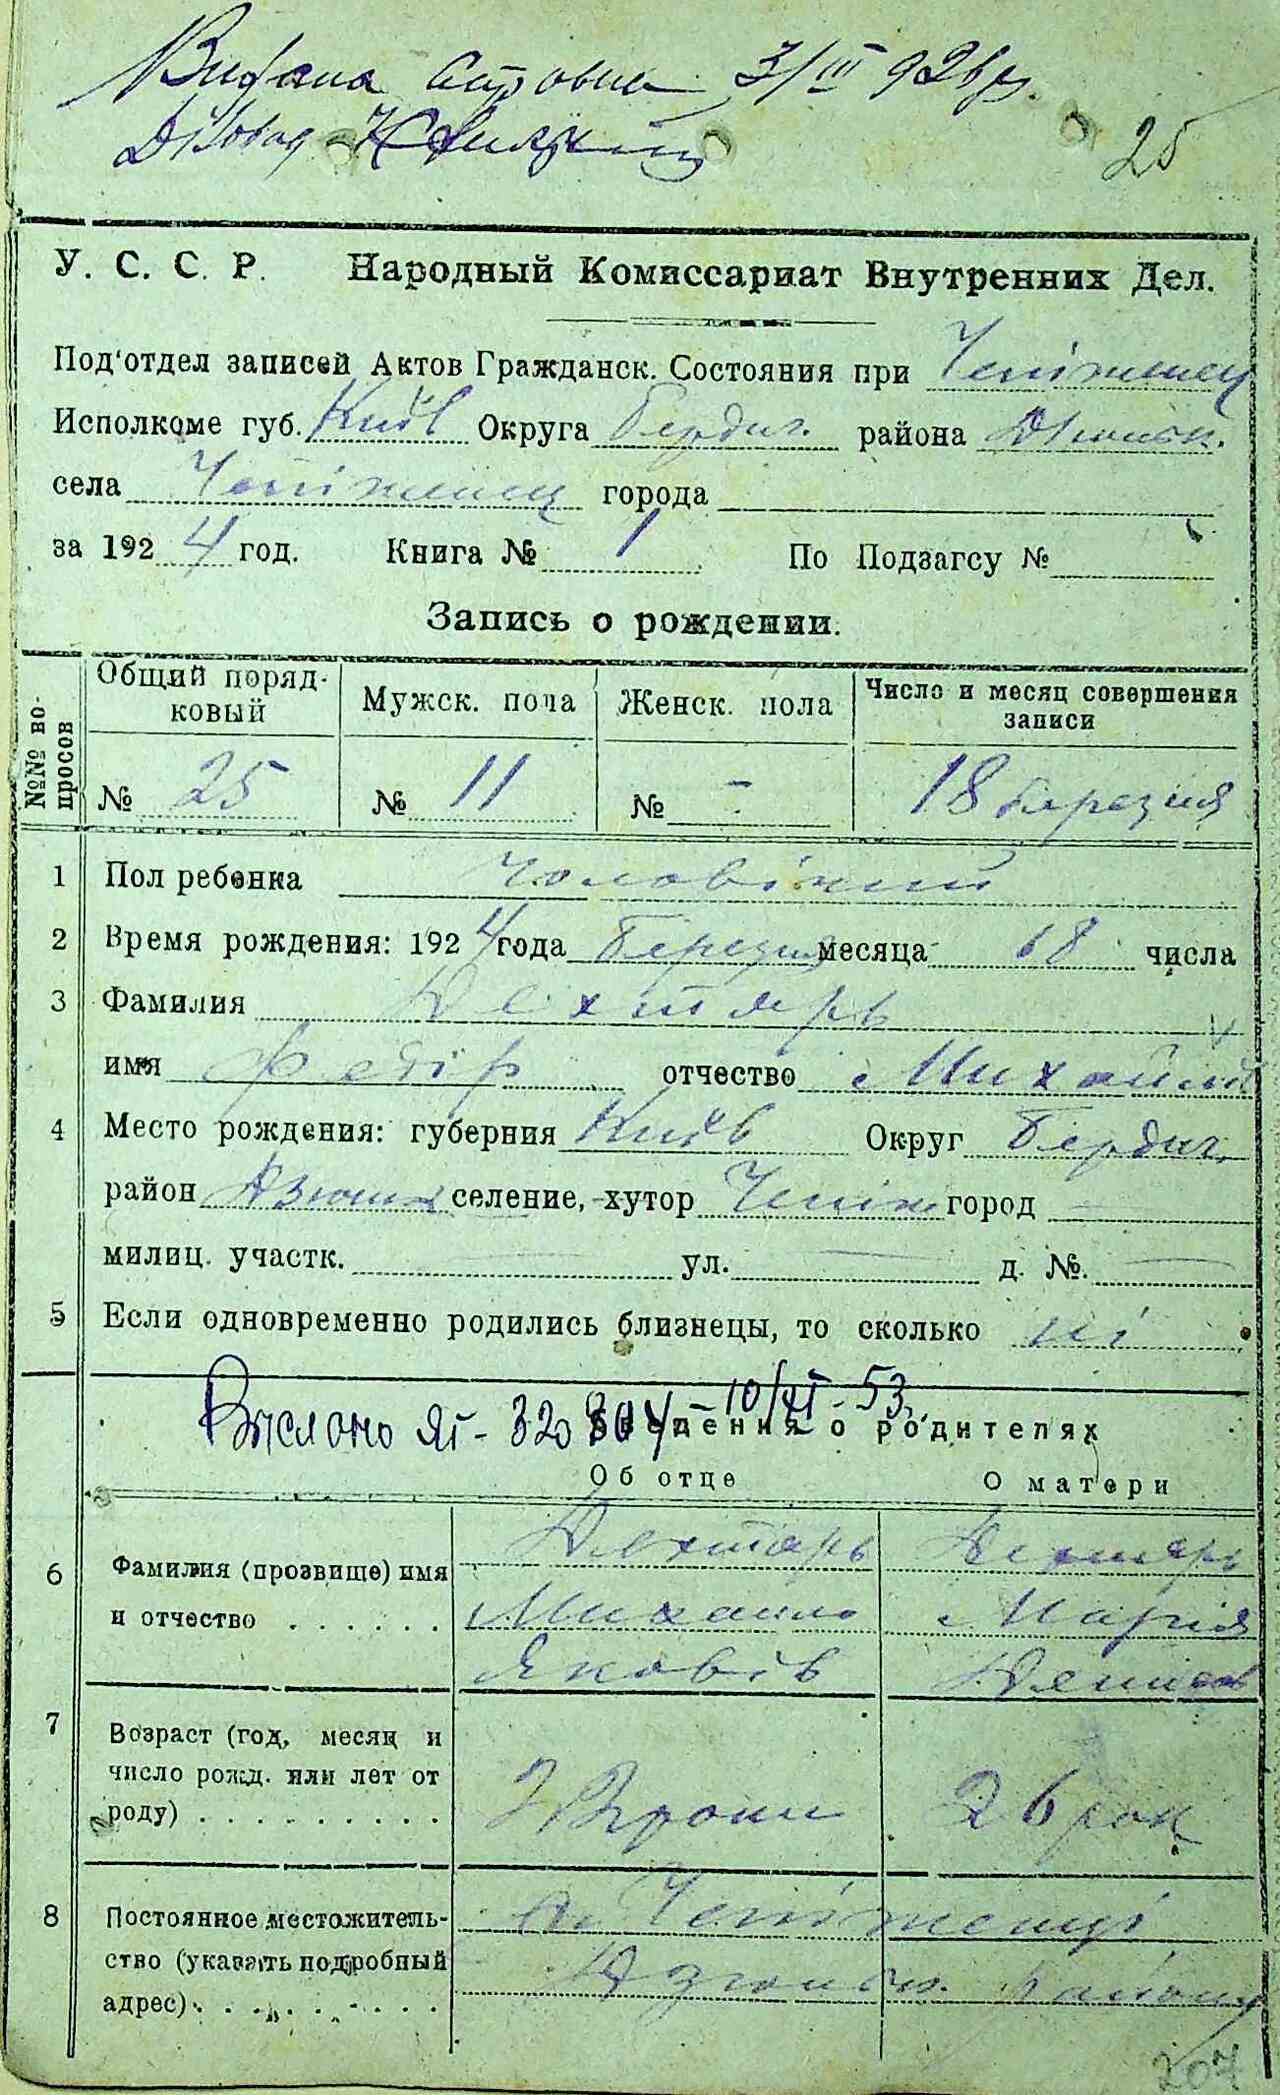 Видана 3/III 926 р.
Діловод
25
У. С. С. Р. Народный Комиссариат Внутренних Дел.
Под'отдел записей Актов Гражданск. Состояния при
Исполкоме губ. Київ Округа Бердич. района
села города
за 1924 год. Книга № 1 По Подзагсу №
Запись о рождении.
№№ вопросов
Общий порядковый Мужск. пола Женск. пола Число и месяц совершения записи
№ 25 № 11 № - 18 березня
1 Пол ребенка Чоловічий
2 Время рождения: 1924 года Березня месяца числа
3 Фамилия Дехтярь
имя Федір отчество Михайлів
4 Место рождения: губерния Київ Округ Бердич.
район Дзюньк селение, хутор город —
милиц. участк. — ул. — д. №. —
5 Если одновременно родились близнецы, то сколько ні
Выслано ЯГ- 320804 - 10/VI - 53.
Сведения о родителях
Об отце О матери
6 Фамилия (прозвище) имя Дехтярь Дехтярь
и отчество . . . . . . Михайло Марія
Яковів
7 Возраст (год, месяц и
число рожд. или лет от
роду) . . . . . . . . . . роки 26 рок
8 Постоянное местожитель-
ство (указать подробный
адрес) . . . . . . . . . Дзюньк. району
207